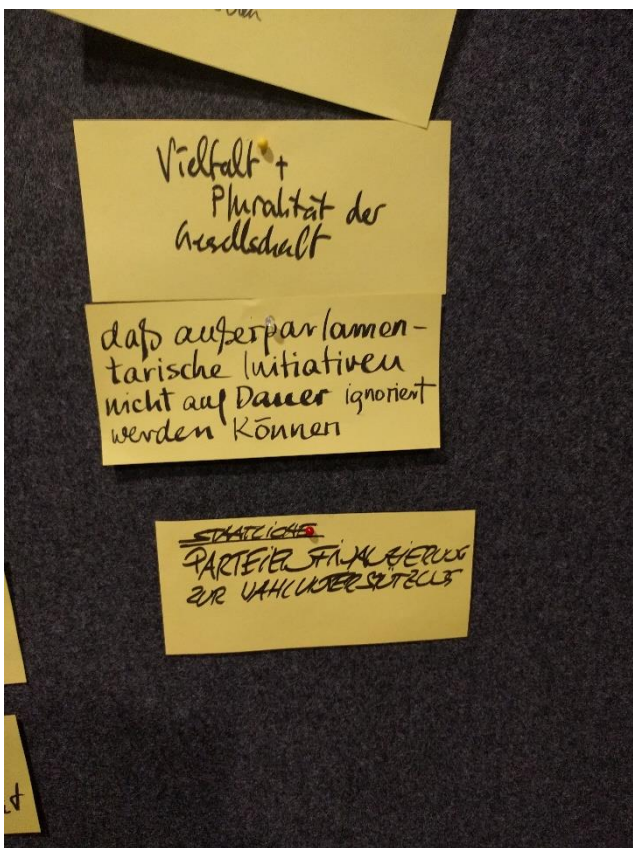 Vielfalt +
Pluralität der
Gesellschaft
daß außerparlamen-
tarische Initiativen
nicht auf Dauer ignoriert
werden können
STAATLICHE
PARTEIENFINANZIERUNG
ZUR